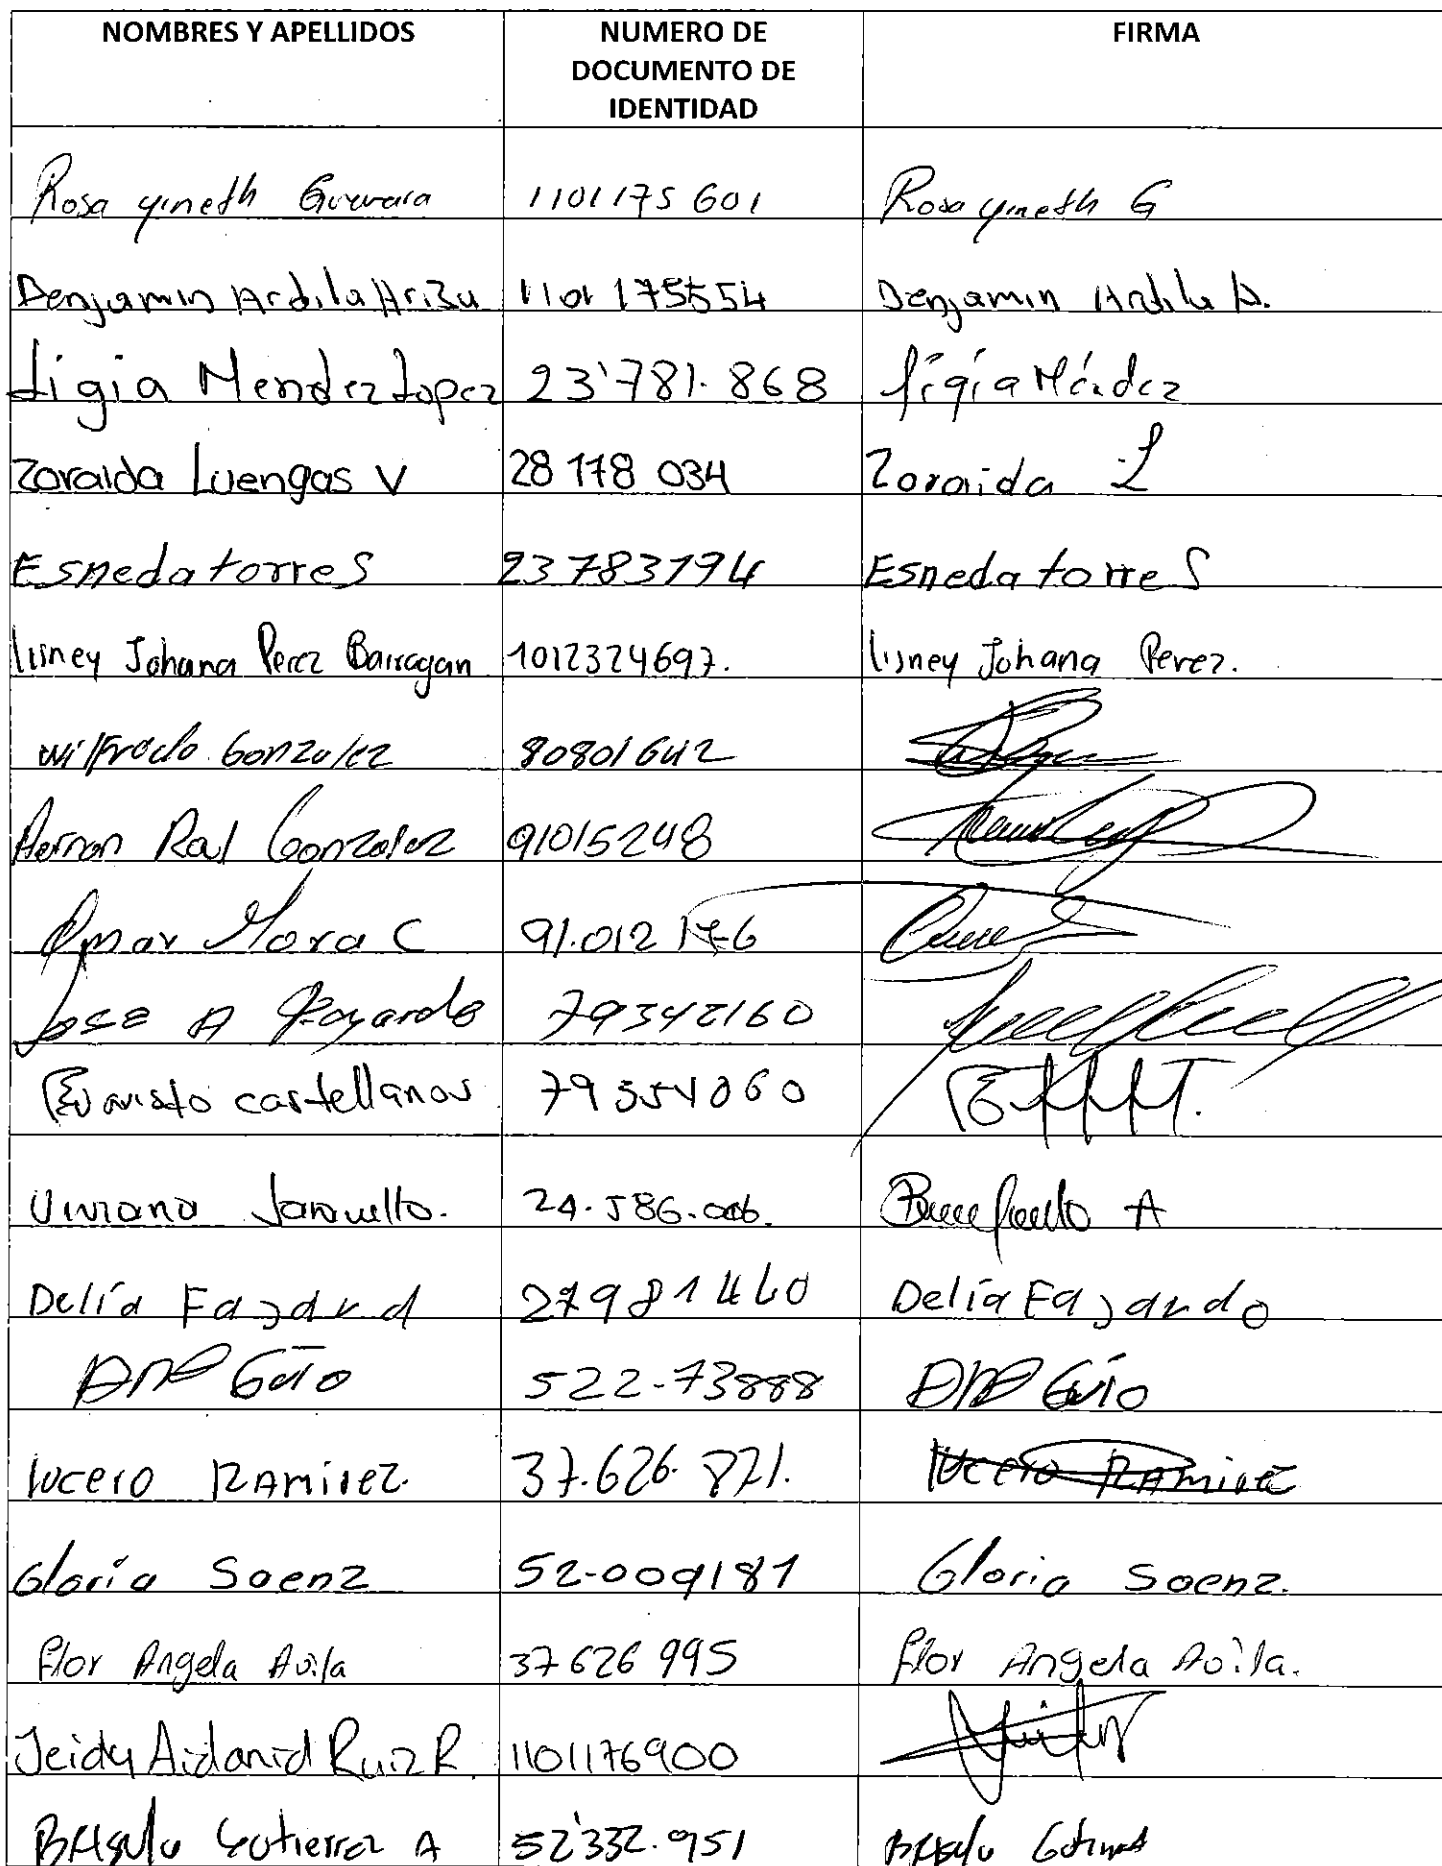 NOMBRES Y APELLIDOS NUMERO DE DOCUMENTO DE IDENTIDAD FIRMA
Rosa yineth Guevara 1101175 601 Rosa yineth G
Benjamin Ardila Ariza 1101 175554 Benjamin Ardila A.
Ligia Mendez Lopez 23'781.868 Ligia Méndez
Zoraida Luengas V 28 178 034 Zoraida L
Esneda torres 23783794 Esneda torres
lisney Johana Perez Barragan 1012324697. lisney Johana Perez.
Wilfredo Gonzalez 80801642
Hernan Raul Gonzalez 91015248
Omar Mora C 91.012 176
Jose A Fajardo 79342160
Evaristo castellanos 79354060
Viviana Jaramillo. 24.586.006.
Delía Fajard 27981460 Delía Fajardo
Guío 522-73888 Guío
lucero RAmirez. 37.626.871. lucero RAmirez
Gloria Saenz 52-009181 Gloria Saenz.
flor Angela Avila 37626 995 flor Angela Avila.
Jeidy Aidanid Ruiz R. 1101176900
Gutierrez A 52'332.951